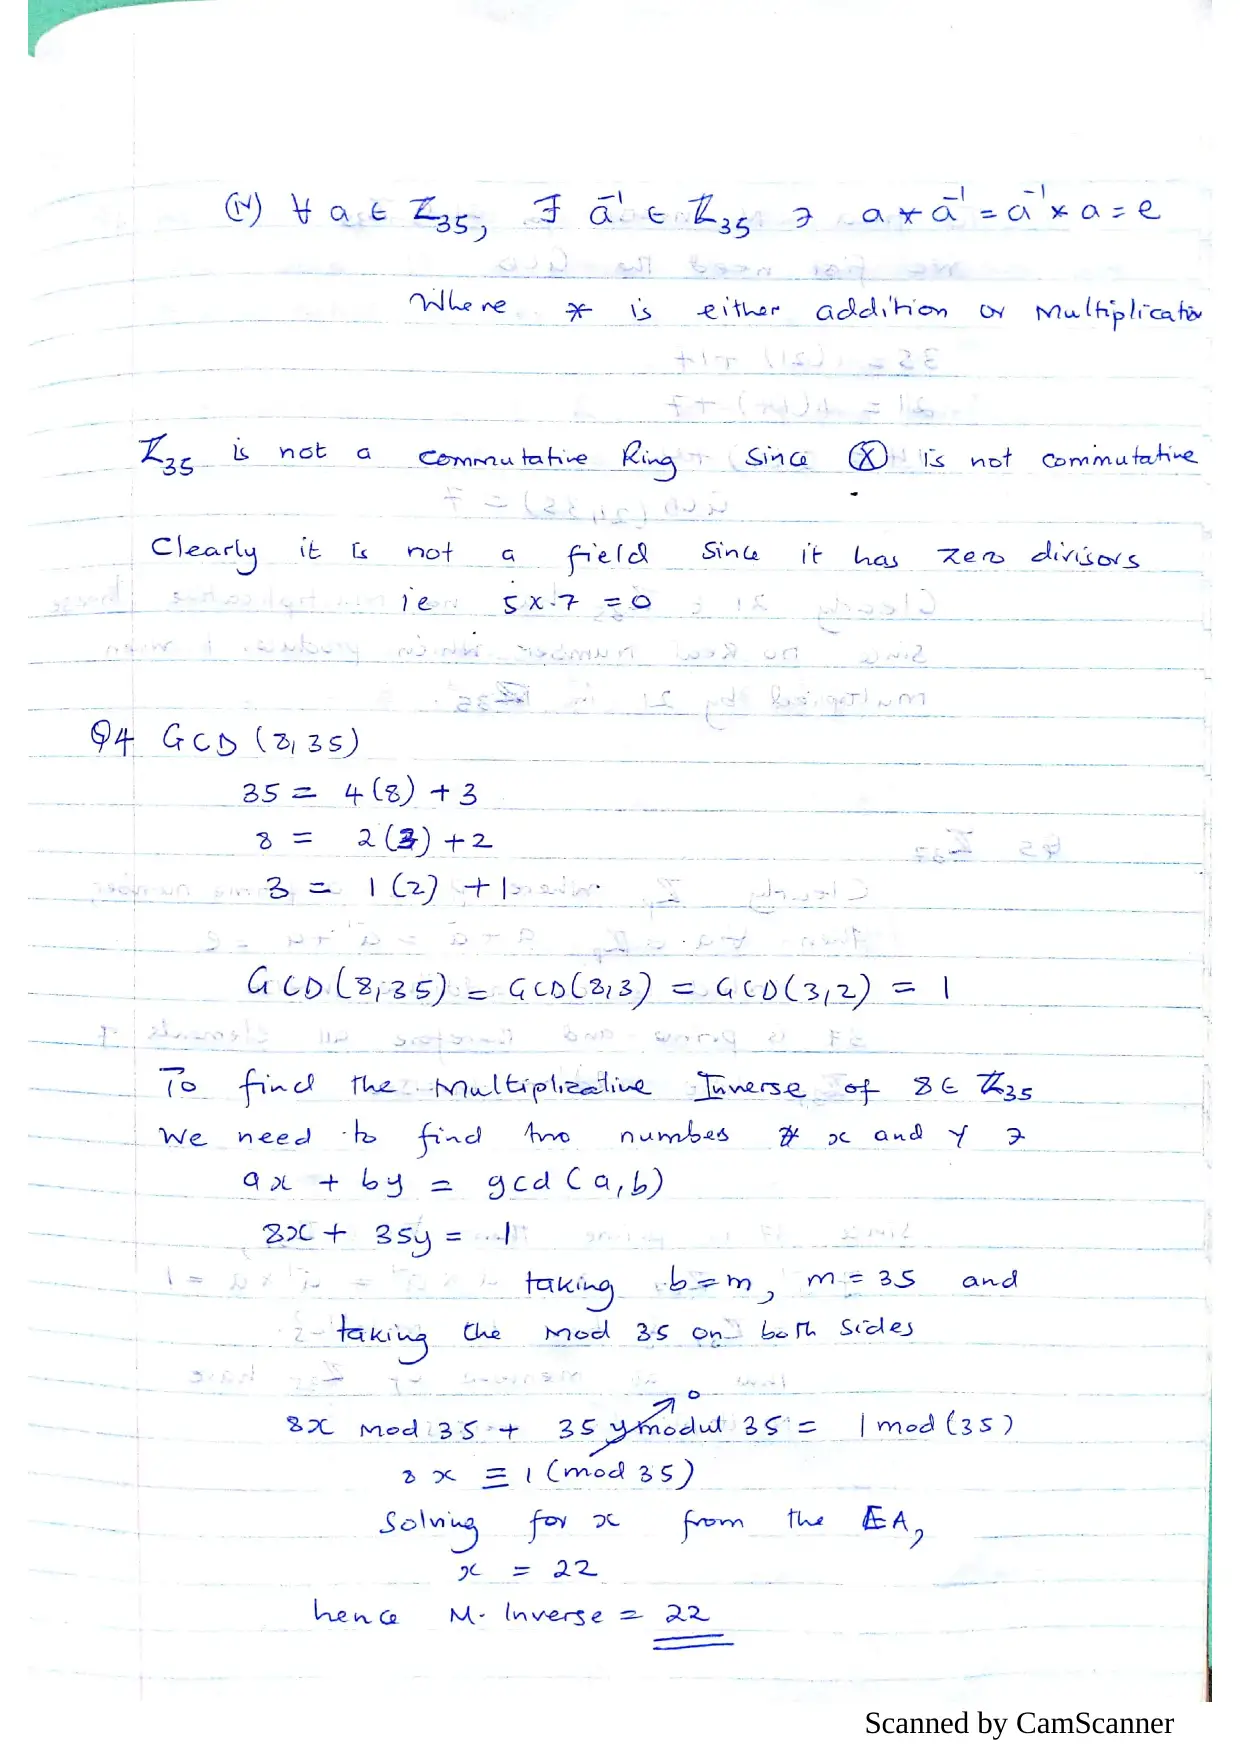 (iv) ∀ a ∈ ℤ35, ∃ a⁻¹ ∈ ℤ35 ∋ a * a⁻¹ = a⁻¹ * a = e
Where * is either addition or Multiplication
ℤ35 is not a commutative Ring since ⊗ is not commutative
Clearly it is not a field Since it has zero divisors
ie 5 x 7 = 0
Q4 GCD (8, 35)
35 = 4(8) + 3
8 = 2(3) + 2
3 = 1(2) + 1
GCD(8,35) = GCD(8,3) = GCD(3,2) = 1
To find the Multiplicative Inverse of 8 ∈ ℤ35
We need to find two numbes x and y ∋
ax + by = gcd (a,b)
8x + 35y = 1
taking b = m, m = 35 and
taking the Mod 35 on both sides
8x Mod 35 + 35 y modul 35 0 = 1 mod (35)
8x ≡ 1 (mod 35)
Solving for x from the EA,
x = 22
hence M. Inverse = 22
Scanned by CamScanner